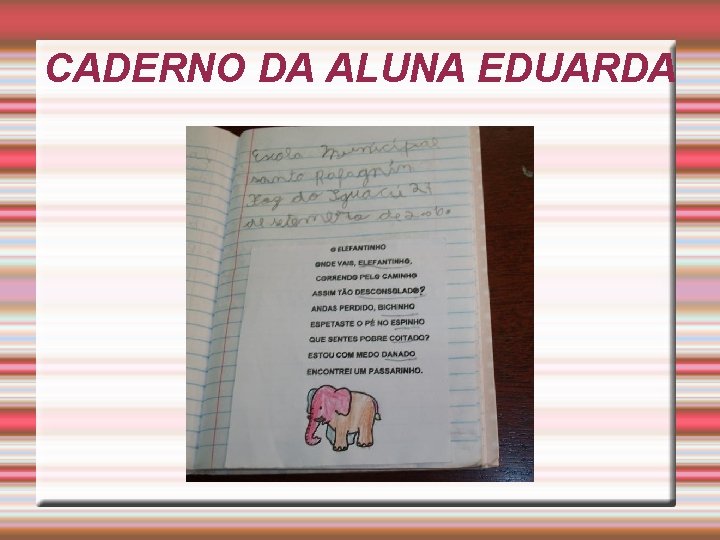 CADERNO DA ALUNA EDUARDA
Escola Municipal
santo Rafagnin
Foz do Iguacú 21
de setembro de 2.010.
O ELEFANTINHO
ONDE VAIS, ELEFANTINHO,
CORRENDO PELO CAMINHO
ASSIM TÃO DESCONSOLADO?
ANDAS PERDIDO, BICHINHO
ESPETASTE O PÉ NO ESPINHO
QUE SENTES POBRE COITADO?
ESTOU COM MEDO DANADO
ENCONTREI UM PASSARINHO.